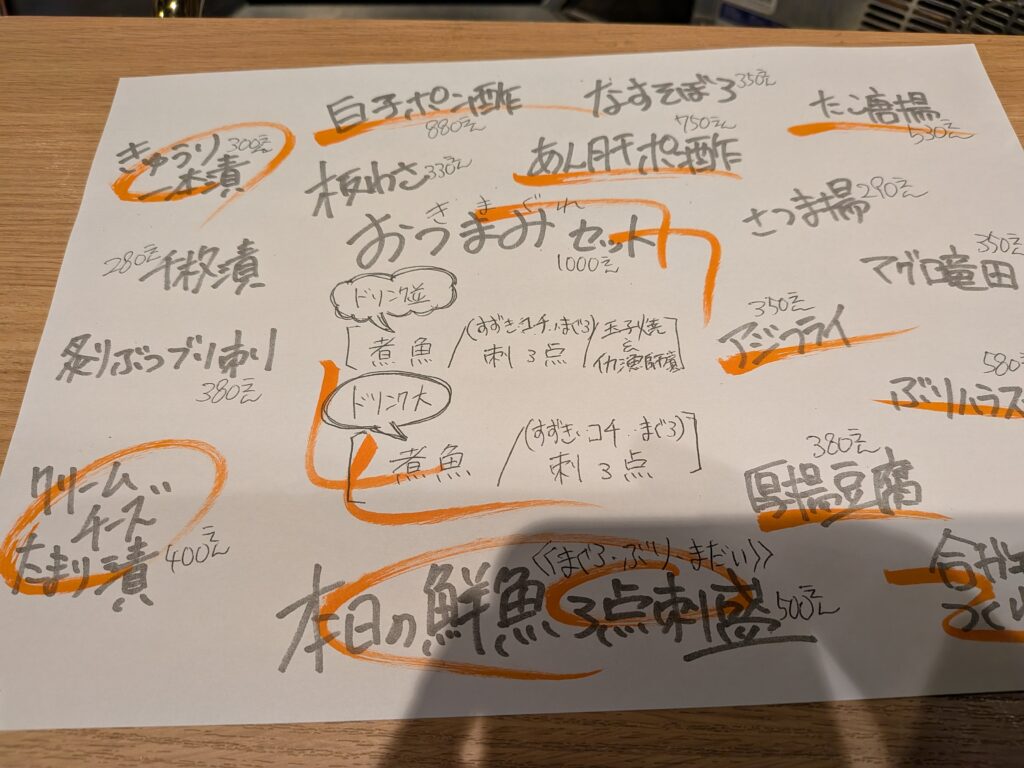 白子ポン酢
880えん
なすそぼろ 350えん
たこ唐揚
530えん
きゅうり 300えん
一本漬
板わさ 330えん
750えん
あん肝ポン酢
さつま揚 290えん
きまぐれ
おつまみセット
1000えん
280えん 千枚漬
350えん
マグロ竜田
ドリンク並
[煮魚/(すずき・コチ・まぐろ)刺3点/玉子焼
&
炙りぶつブリ刺り
380えん
350えん
アジフライ
580
ぶりハラス
ドリンク大
[煮魚/(すずき・コチ・まぐろ)
刺3点]
380えん
厚揚豆腐
クリーム
チーズ
たまり漬 400えん
《まぐろ・ぶり・まだい》
本日の鮮魚3点刺盛 500えん
合ガモ
つくね